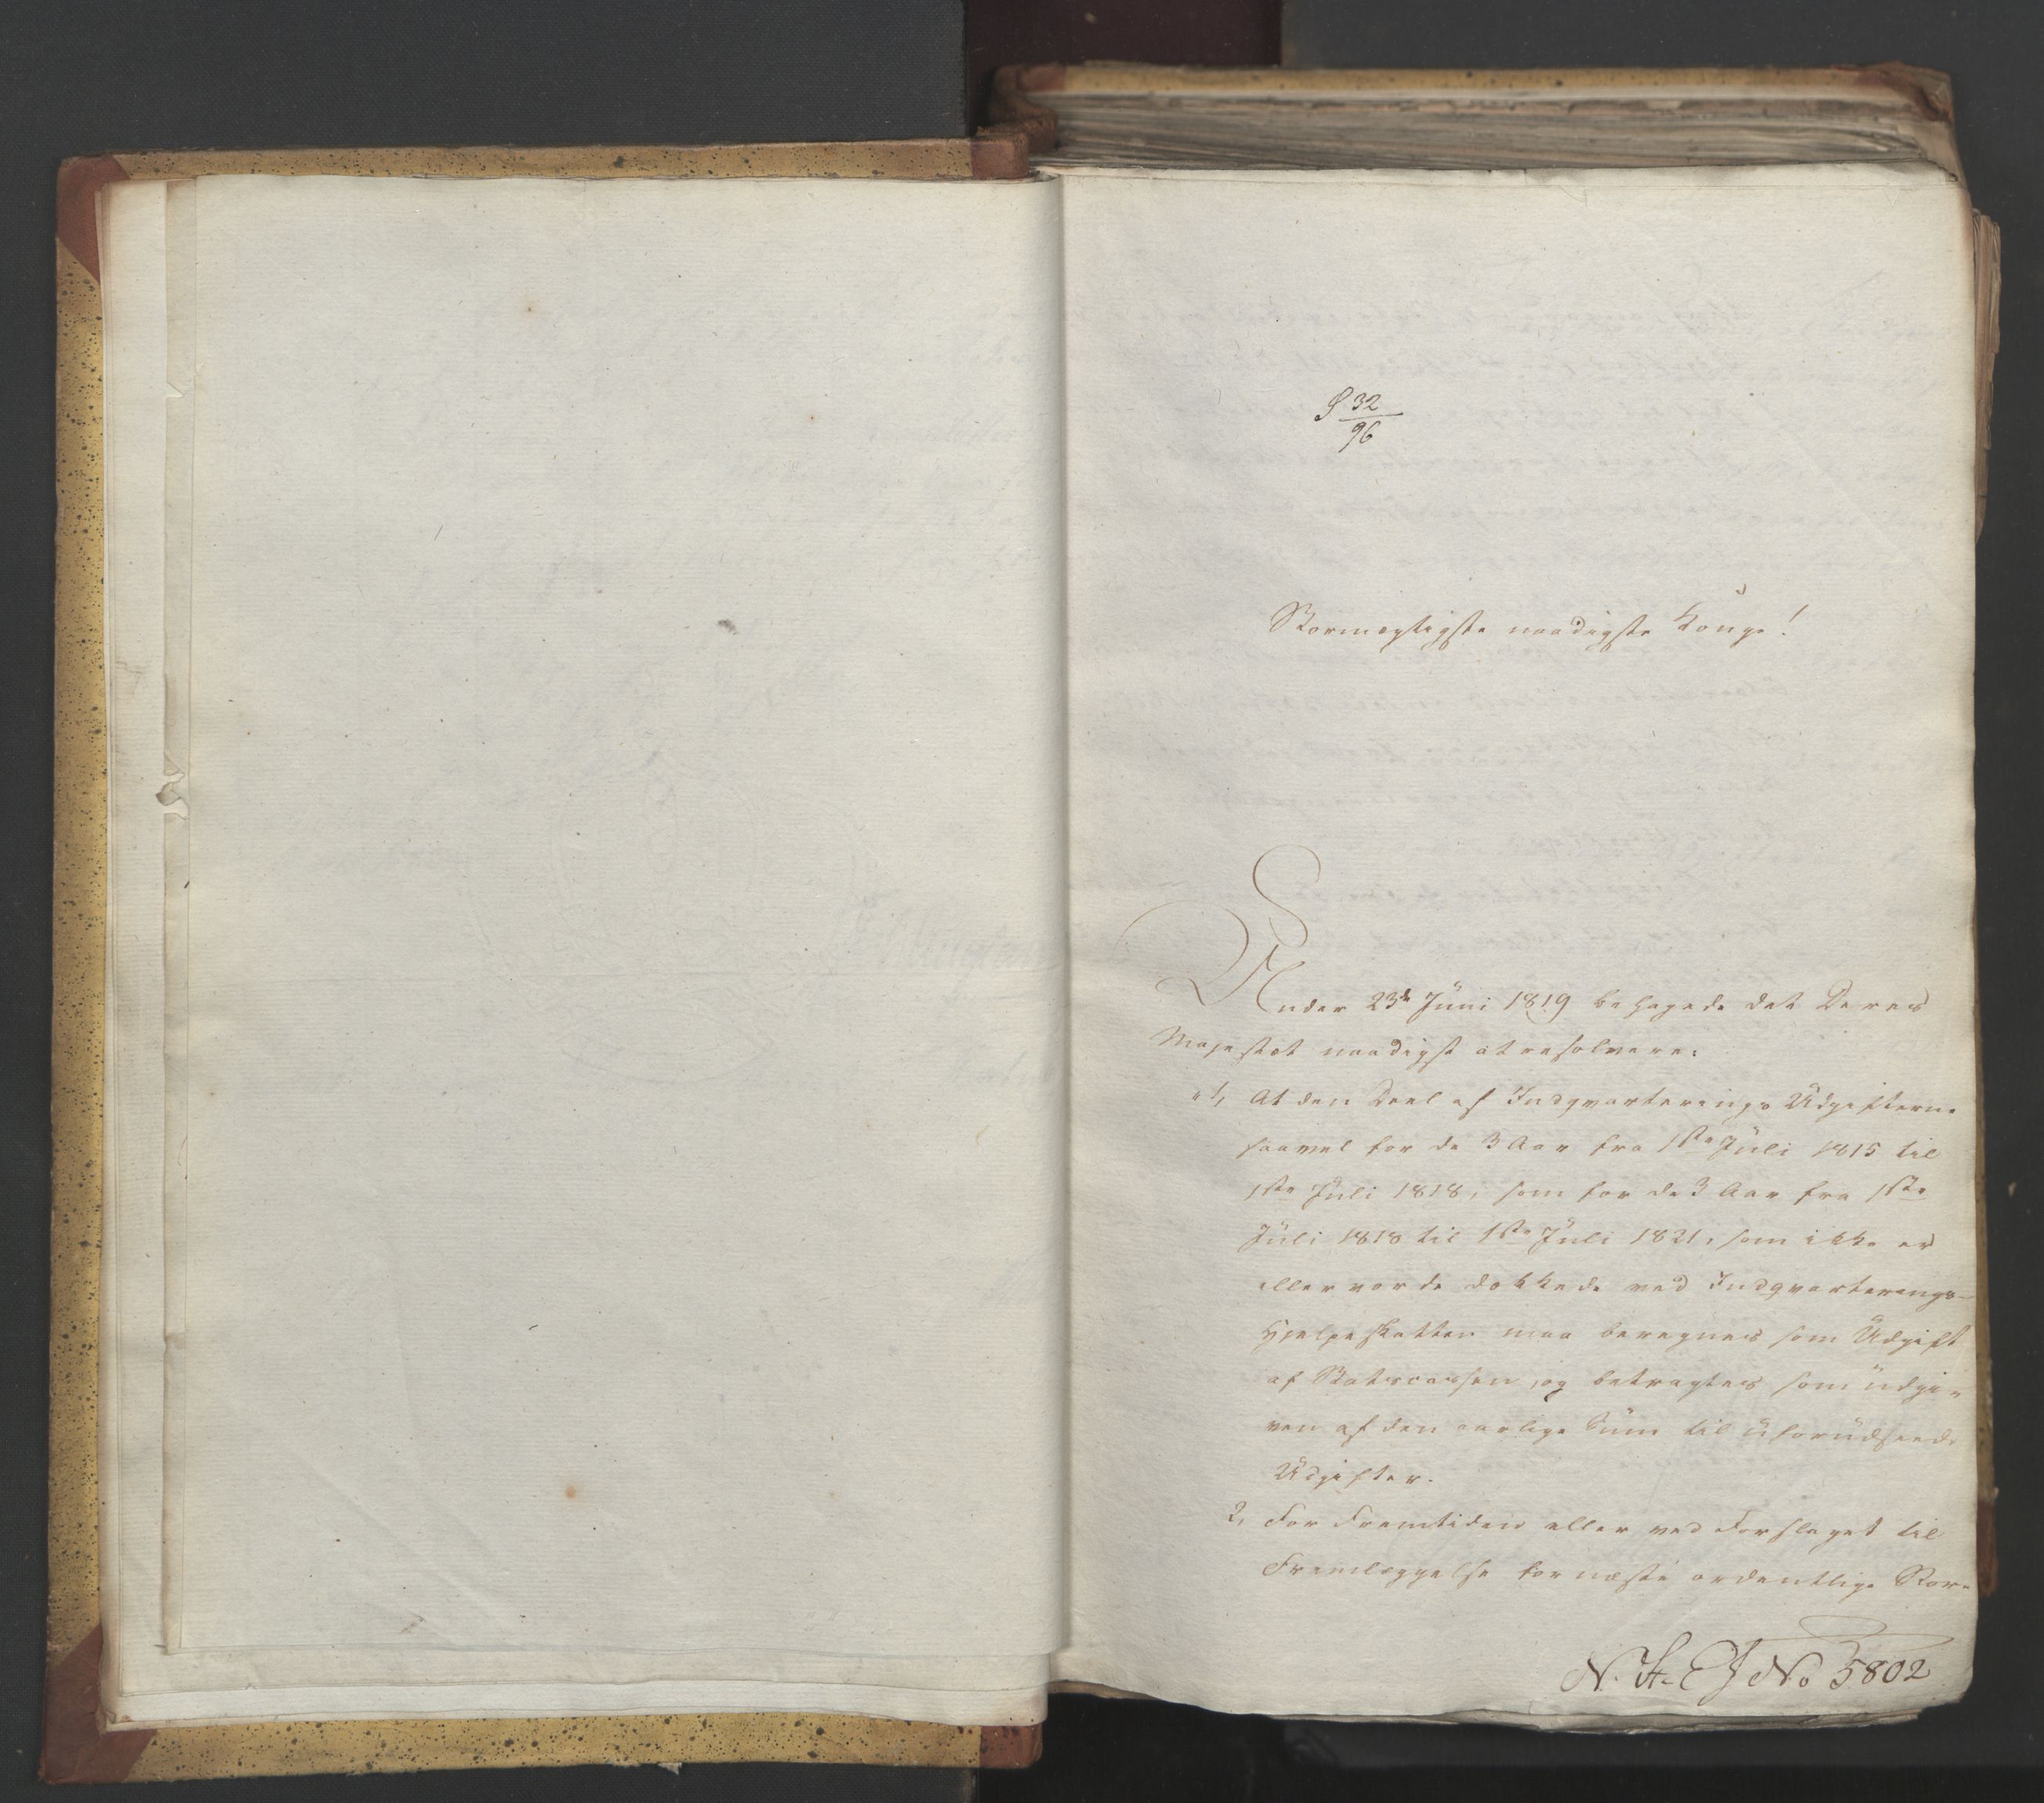 S 32/96
Stormægtigste naadigste Konge!
Under 23de Juni 1819 behagede det Deres
Majestæt naadigst at resolvere:
"1, At den Deel af Indqvarterings Udgifterne
saavel for de 3 Aar fra 1ste Juli 1815 til
1ste Juli 1818, som for de 3 Aar fra 1ste
Juli 1818 til 1ste Juli 1821, som ikke er
eller vorde dækkede ved Indqvarterings-
Hjelpeskatten maa beregnes som Udgift
af Statscassen, og betragtes som udgi-
ven af den aarlige Sum til uforudseede
Udgifter.
2, For Fremtiden eller ved Forslaget til
Fremlæggelse for næste ordentlige Stor-
N. St. C J No 5802